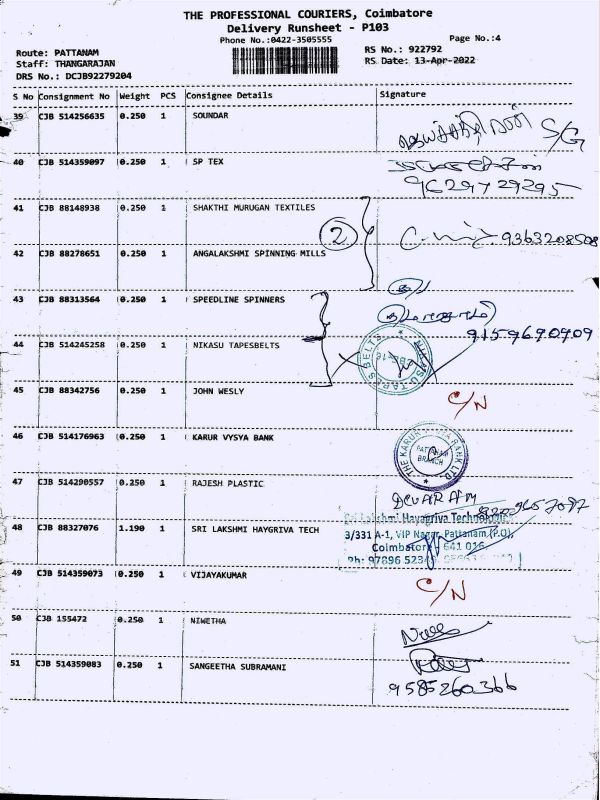 THE PROFESSIONAL COURIERS, Coimbatore
Delivery Runsheet - P103
Phone No.:0422-3505555
Page No.:4
Route: PATTANAM
RS No.: 922792
Staff: THANGARAJAN
RS Date: 13-Apr-2022
DRS No.: DCJB92279204
S No Consignment No Weight PCS Consignee Details Signature
39 CJB 514256635 0.250 1 SOUNDAR
S/G
40 CJB 514359097 0.250 1 SP TEX
9629729295
41 CJB 88148938 0.250 1 SHAKTHI MURUGAN TEXTILES
2
9363208508
42 CJB 88278651 0.250 1 ANGALAKSHMI SPINNING MILLS
43 CJB 88313564 0.250 1 SPEEDLINE SPINNERS
9159690909
44 CJB 514245258 0.250 1 NIKASU TAPESBELTS
45 CJB 88342756 0.250 1 JOHN WESLY C/N
46 CJB 514176963 0.250 1 KARUR VYSYA BANK
THE KARUR VYSYA BANK LTD.
PATTANAM
BRANCH
47 CJB 514290557 0.250 1 RAJESH PLASTIC
DEVARAM
48 CJB 88327076 1.190 1 SRI LAKSHMI HAYGRIVA TECH
Sri Lakshmi Hayagriva Technologies
3/331 A-1, VIP Nagar, Pattanam (P.O),
Coimbatore - 641 016.
Ph: 97896 5234
49 CJB 514359073 0.250 1 VIJAYAKUMAR C/N
50 CJB 155472 0.250 1 NIWETHA
51 CJB 514359083 0.250 1 SANGEETHA SUBRAMANI
9585260366